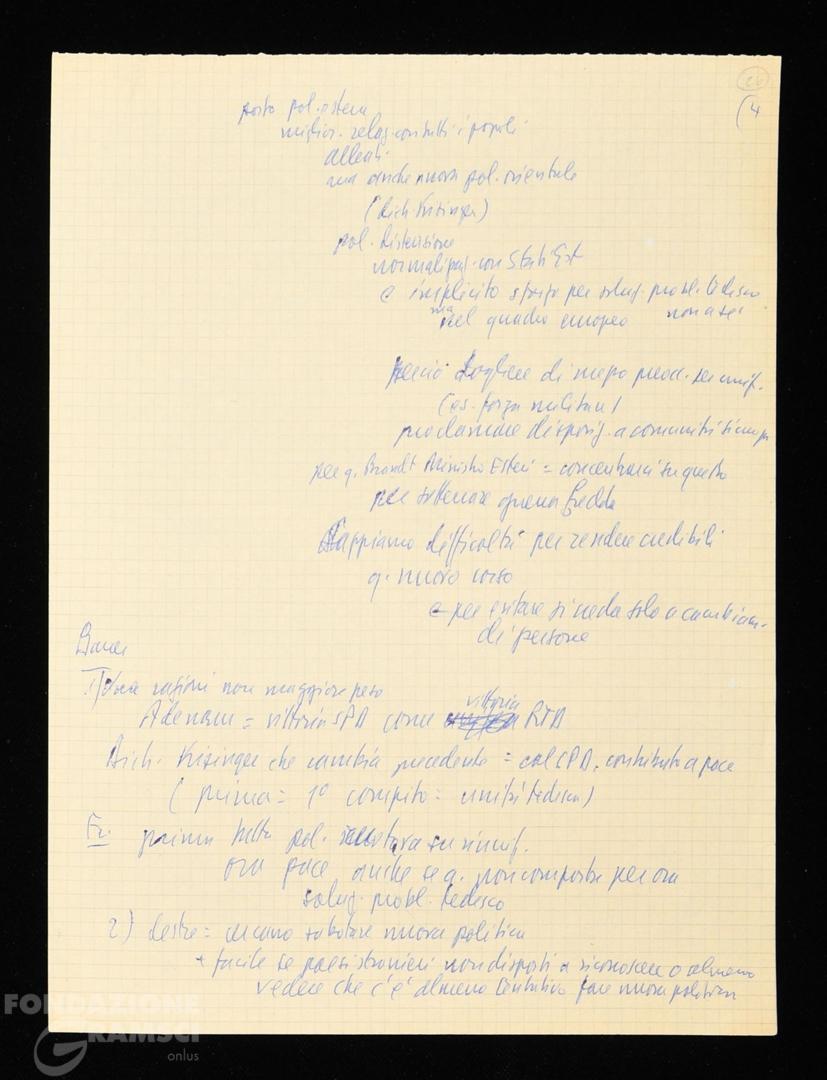 26
(4
posto pol. estera
miglior. relaz. con tutti i popoli
alleati
ma anche nuova pol. orientale
(dich. Kisinger)
pol. distensione
normalizzaz. con Stati Est
e implicito sforzo per soluz. probl. tedesco
ma nel quadro europeo non a sé
perciò togliere di mezzo preoc. per unif.
(es. forza militare)
proclamare disponiz. a
per q. Brandt Ministro Esteri = concentrarsi su questo
per sotterrare guerra fredda
Sappiamo difficoltà per rendere credibili
q. nuovo corso
e per evitare si veda solo a cambiam.
di persone
Bauer
1) ragioni non maggiore peso
Adenau = vittoria SPD come vittoria RTD
Dich. Kisinger che cambia precedente = col CPD, contributo a pace
(prima = 1° compito = unità tedesca)
Fr. prima tutta pol. su riunif.
ora pace anche se q. non comporta per ora
soluz. probl. tedesco
2) destre = cercano sabotare nuova politica
+ facile se paesi stranieri non disposti a riconoscere o almeno
vedere che c'è almeno tentativo fare nuova politica
FONDAZIONE
GRAMSCI
onlus